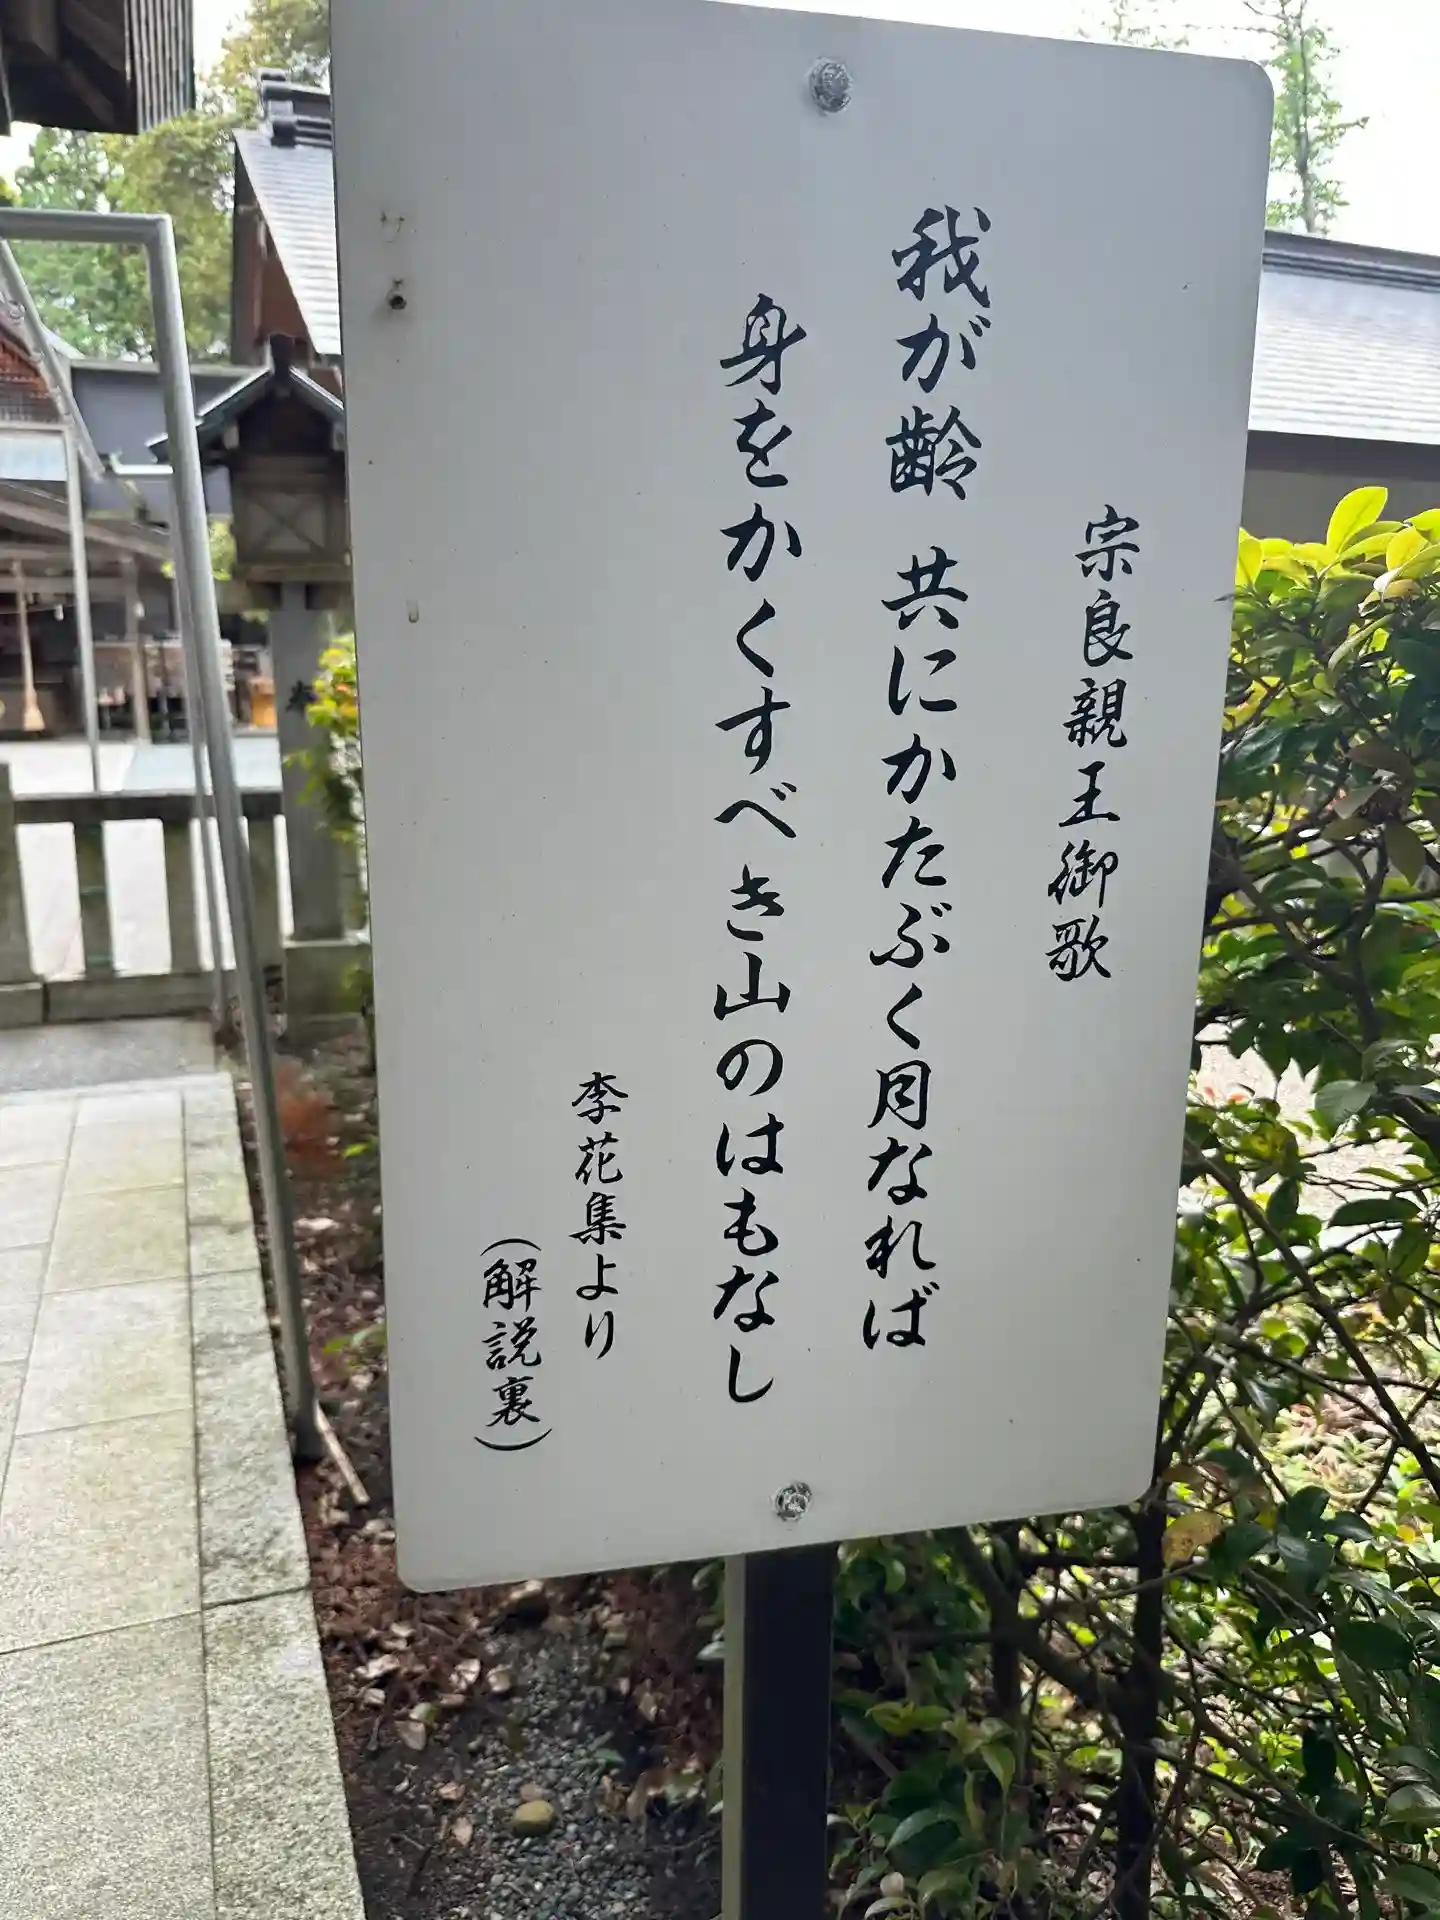 宗良親王御歌
我が齢 共にかたぶく月なれば
身をかくすべき山のはもなし
李花集より
（解説裏）